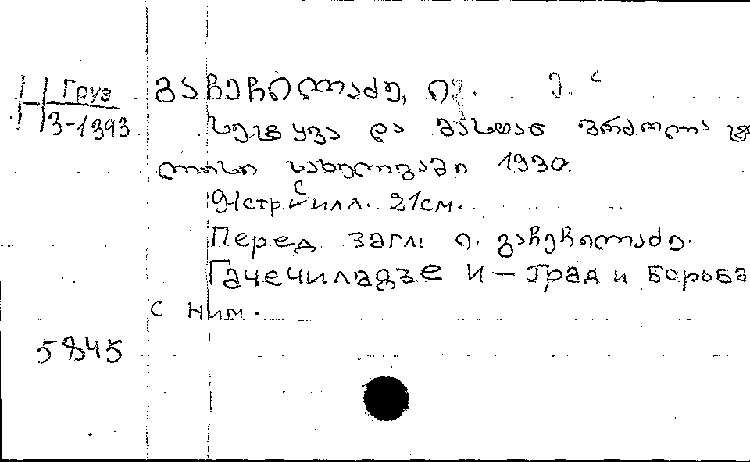 Груз
3-1393
გაჩეჩილაძე, ი. ე.
სეტყვა და მასთან ბრძოლა
სახელგამი 1930
94стр. с илл. 21см.
Перед загл: ი. გაჩეჩილაძე.
Гачечиладзе И - Град и борьба
с ним.
5845